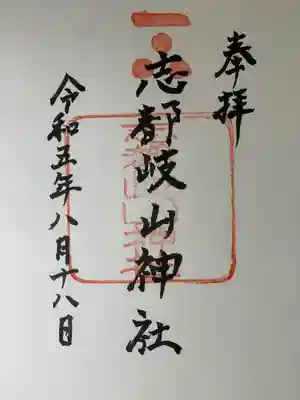 奉拝
志都岐山神社
令和五年八月十八日